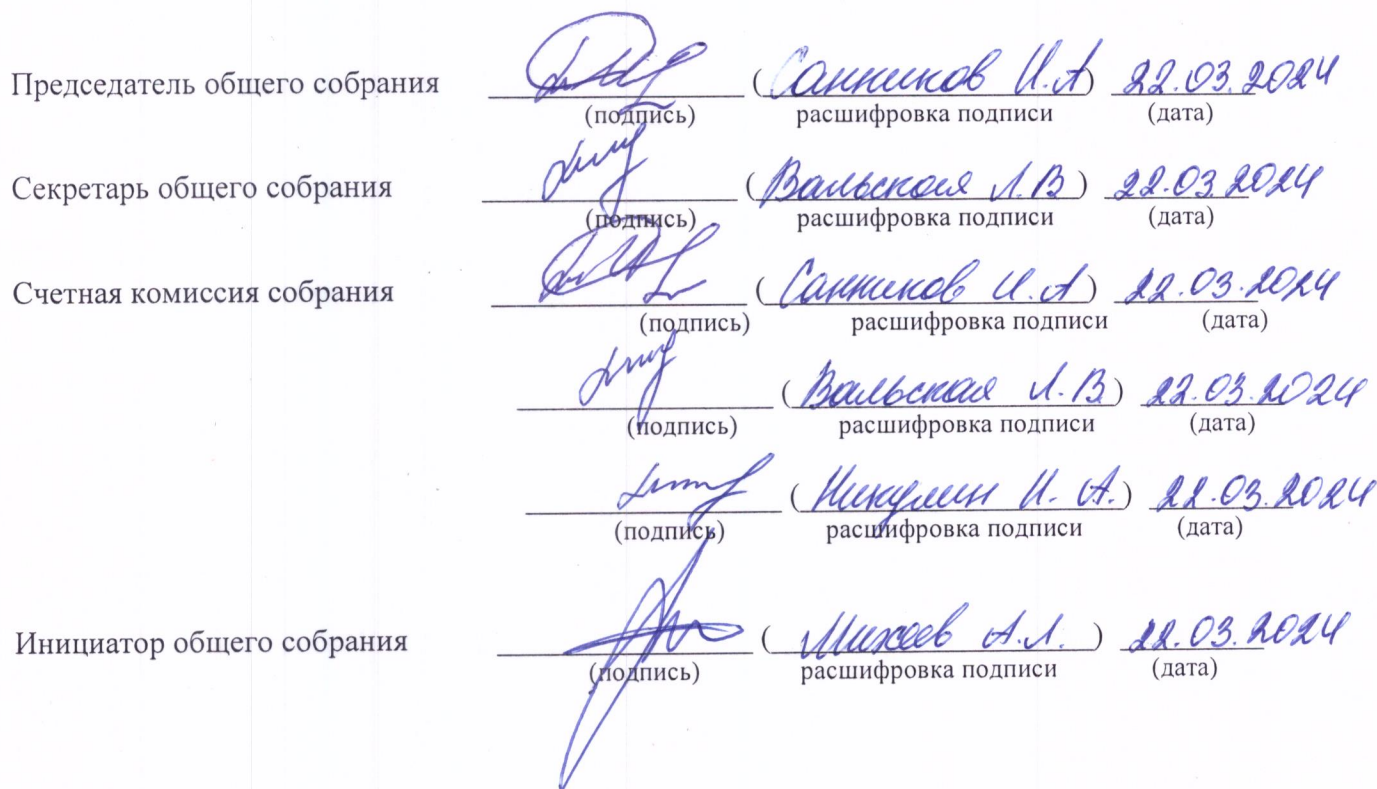 Председатель общего собрания (Санников И.А) 22.03.2024
(подпись) расшифровка подписи (дата)
Секретарь общего собрания (Вальская Л.В) 22.03.2024
(подпись) расшифровка подписи (дата)
Счетная комиссия собрания (Санников И.А) 22.03.2024
(подпись) расшифровка подписи (дата)
(Вальская Л.В.) 22.03.2024
(подпись) расшифровка подписи (дата)
(Никулин И.А.) 22.03.2024
(подпись) расшифровка подписи (дата)
Инициатор общего собрания (Михеев А.Л.) 22.03.2024
(подпись) расшифровка подписи (дата)